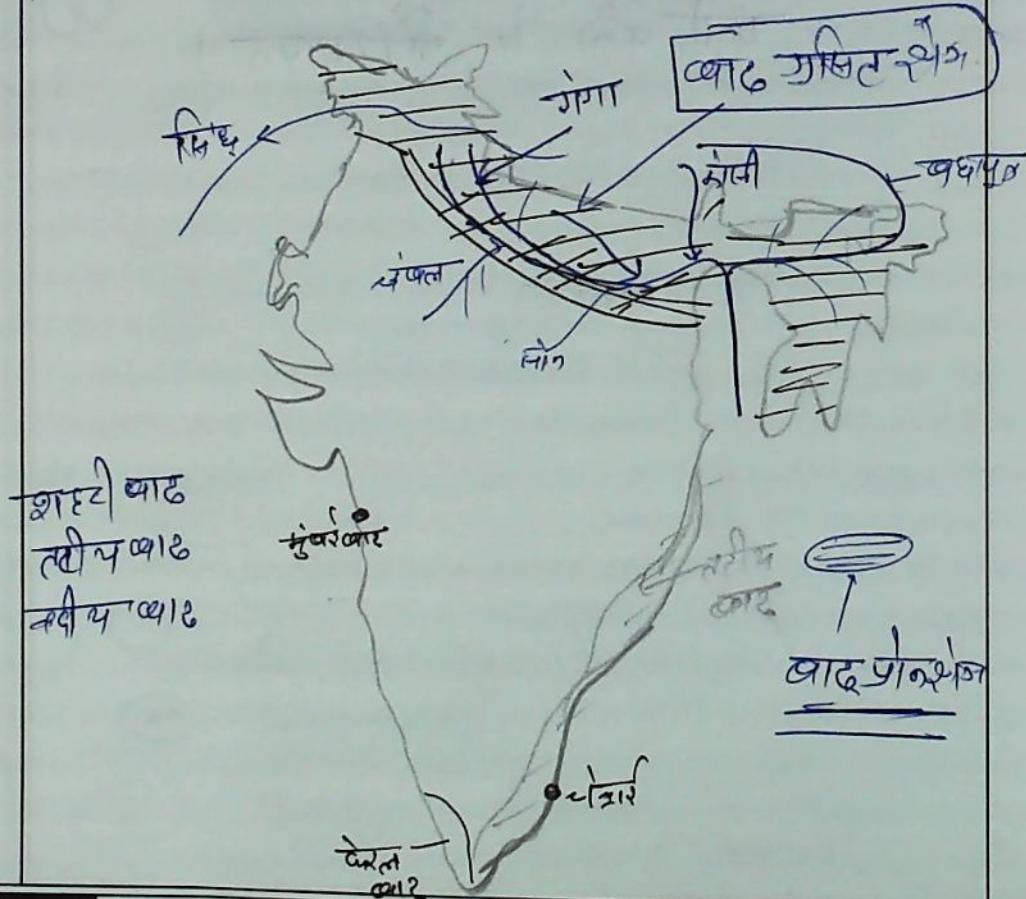 बाढ ग्रसित क्षेत्र
गंगा
सिंधु
कोसी
ब्रह्मपुत्र
चंबल
सोन
शहरी बाढ
तटीय बाढ
नदीय बाढ
मुंबई बाढ
तटीय
बाढ
बाढ प्रोन क्षेत्र
चेन्नई
केरल
बाढ